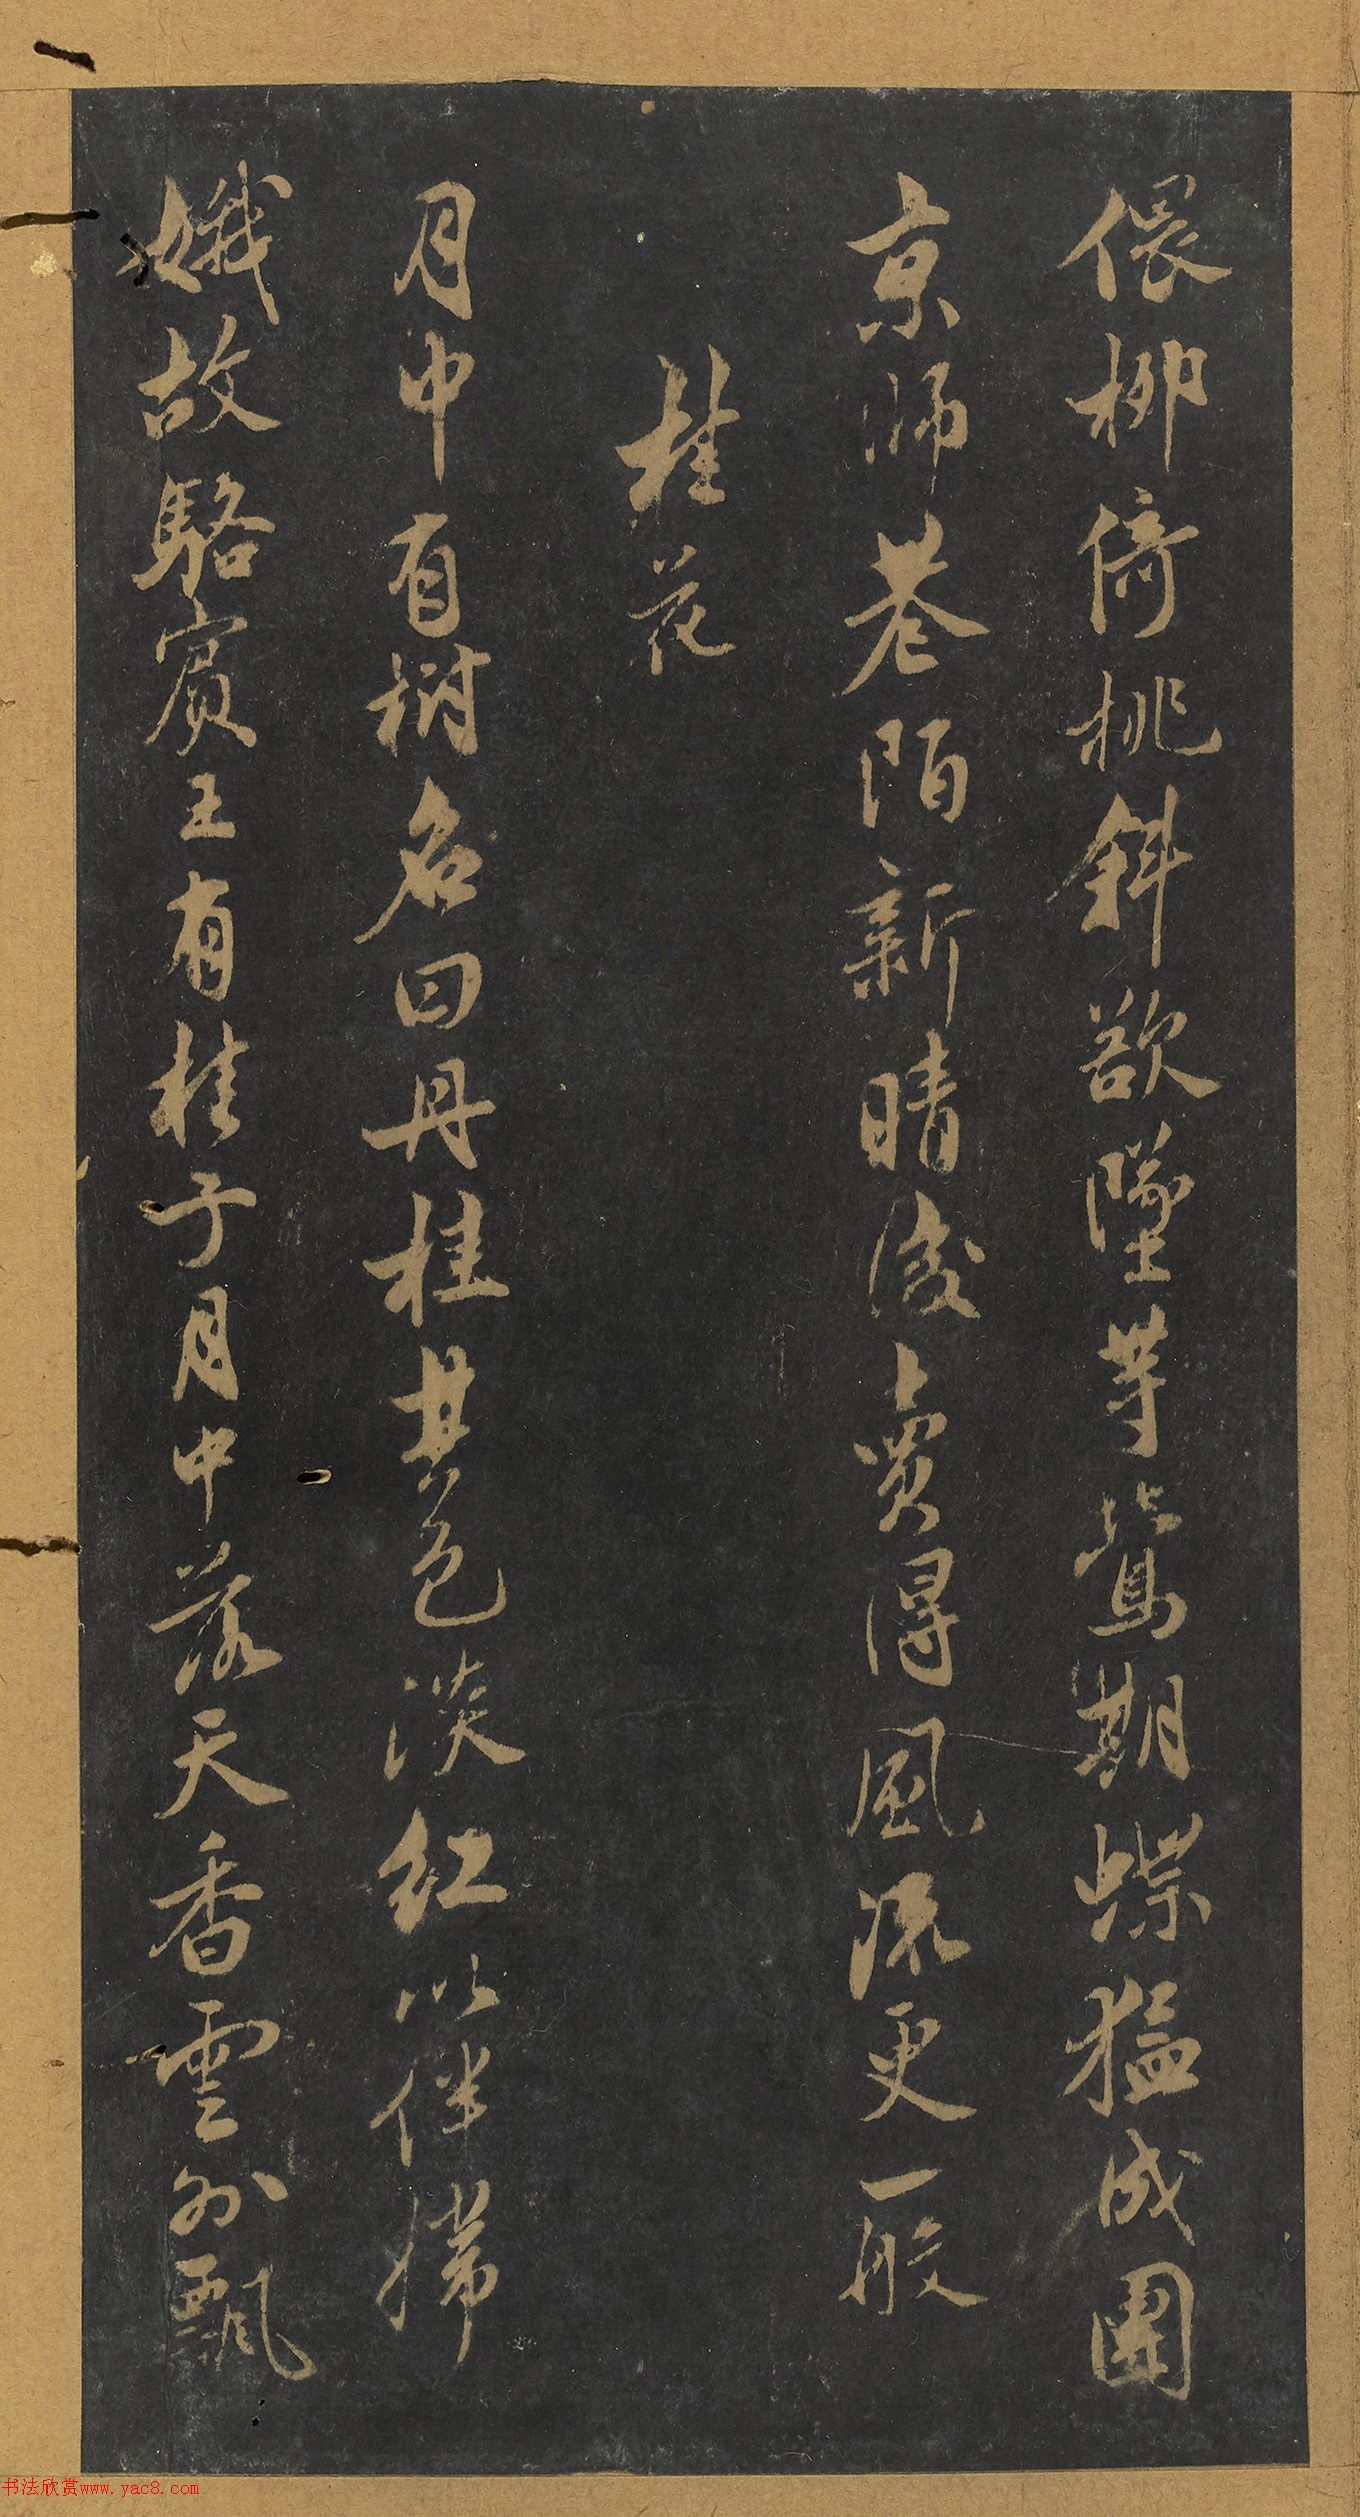 偎柳倚桃斜欲墜等鶯期蝶猛成團
京師巷陌新晴後賣得風流更一般
桂花
月中有樹名曰丹桂其色淡紅以伴嫦
娥故駱賓王有桂子月中落天香雲外飄
书法欣赏www.yac8.com